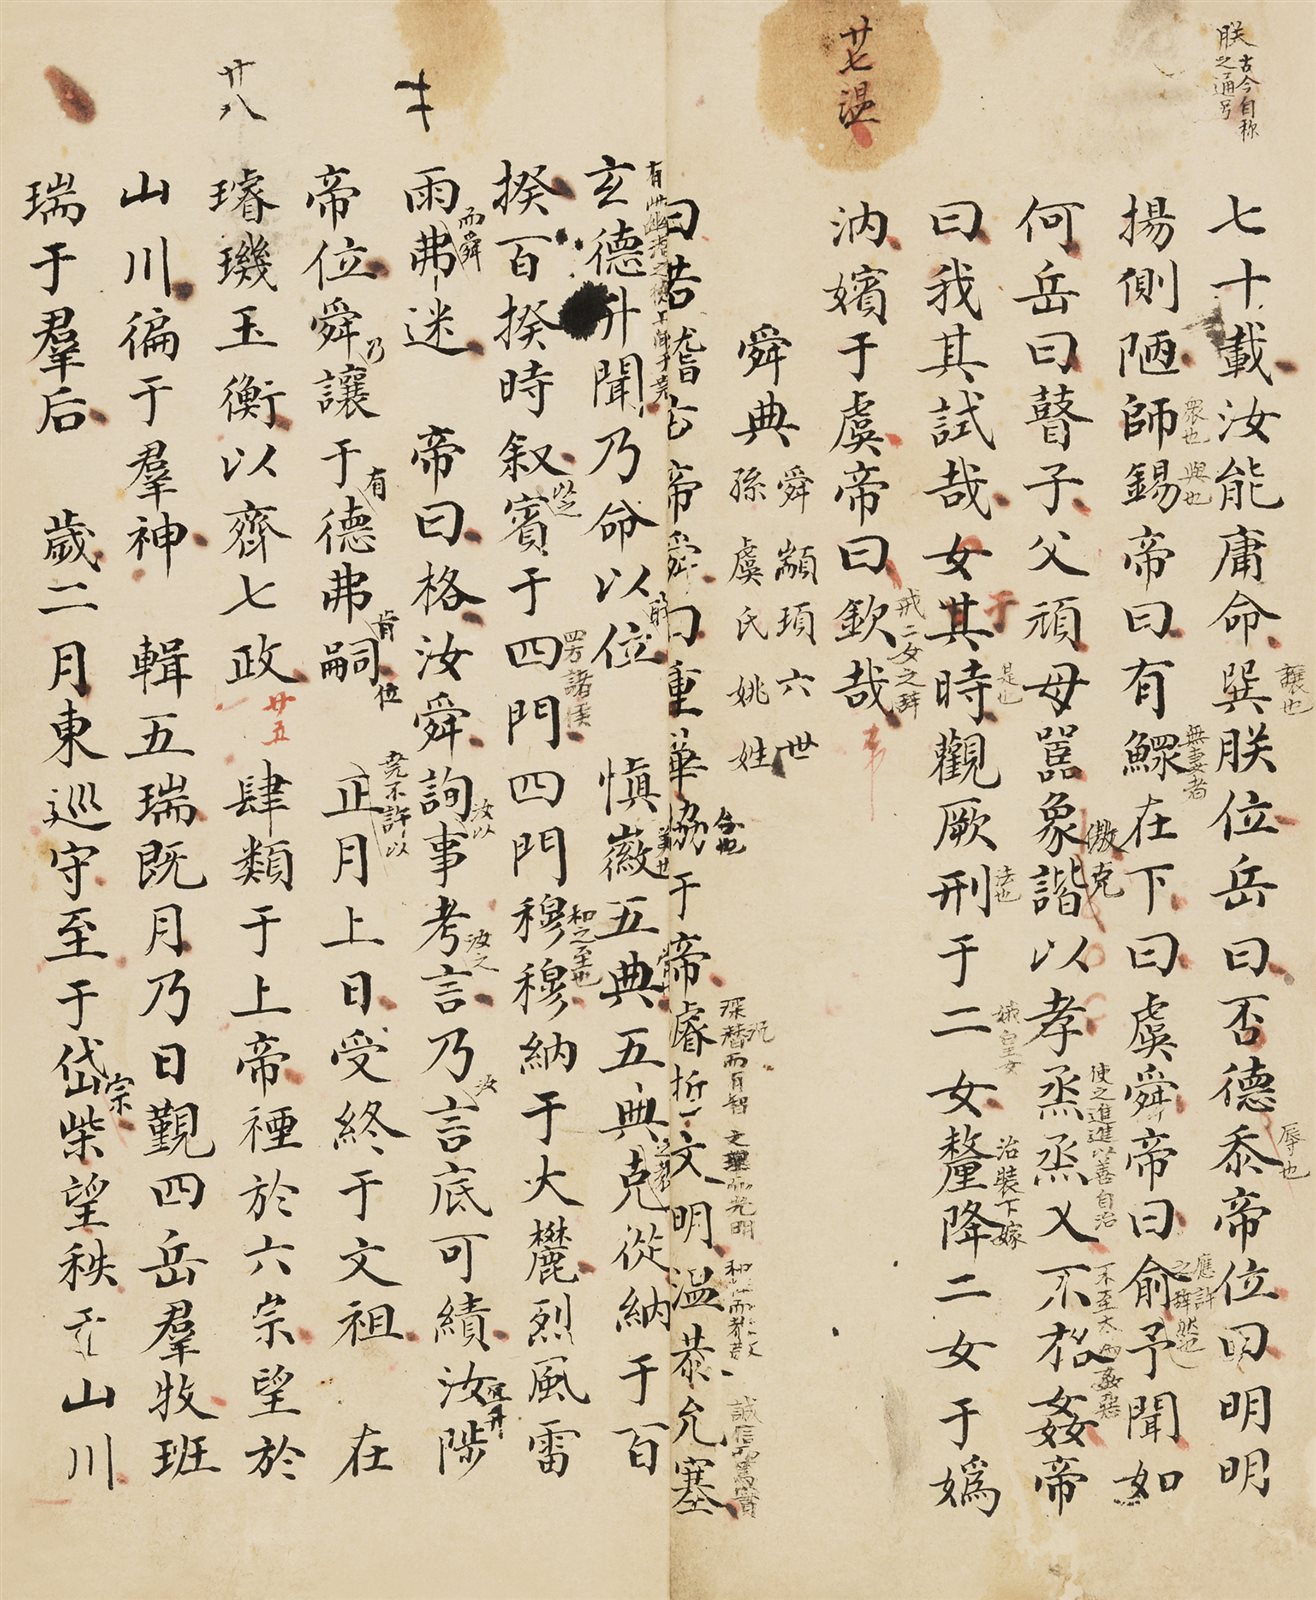 朕古今自称
之通号
七十載汝能庸命巽朕位岳曰否德忝帝位曰明明
讓也
辱也
揚側陋師錫帝曰有鰥在下曰虞舜帝曰俞予聞如
眾也
與也
無妻者
應許
之辞然也
何岳曰瞽子父頑母嚚象傲克諧以孝烝烝乂不格姦帝
使之進進以善自治
不至大為姦惡
曰我其試哉女于其時觀厥刑于二女釐降二女于媯
是也
法也
娥皇女
治裝下嫁
汭嬪于虞帝曰欽哉
戒二女之辞
廿七温
舜典
舜顓頊六世
孫虞氏姚姓
曰若稽古帝舜曰重華協于帝濬哲文明温恭允塞
合也
深沉而有智
文理而光明
誠信而篤實
玄德升聞乃命以位 慎徽五典五典克從納于百
美也
揆百揆時叙賓于四門四門穆穆納于大麓烈風雷
四方諸侯
和之至也
雨弗迷 帝曰格汝舜詢事考言乃言底可績汝陟
而舜
汝以
汝之
汝
宜升
帝位舜讓于德弗嗣 正月上日受終于文祖 在
乃
有
肯
位
堯不許以
廿八
璿璣玉衡以齊七政 肆類于上帝禋於六宗望於
廿五
山川徧于羣神 輯五瑞既月乃日覲四岳羣牧班
瑞于羣后 歲二月東巡守至于岱宗柴望秩于山川